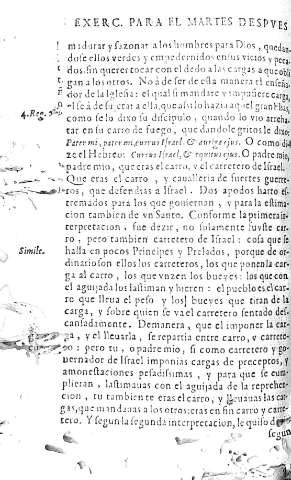 EXERC. PARA EL MARTES DESPVES
madurar y sazonar a los hombres para Dios, quedan
dose ellos verdes y empedernidos en sus vicios y peca
dos, sin querer tocar con el dedo a las cargas a que obli
gan a los otros. No à de ser de esta manera el enseña-
dor de la Iglesia: el qual si mandare y impusiere carga,
el se à de sujetar a ella, que assi lo hazia aquel gran Elias,
como se lo dixo su discipulo, quando lo vio arreba
tar en su carro de fuego, que dandole gritos le dixo:
4. Reg.
Pater mi, pater mi, currus Israel, & auriga ejus. O como di-
ze el Hebreo: Currus Israel, & equitatus ejus. O padre mio,
padre mio, que eras el carro, y el carretero de Israel.
Que eras el carro, y cavalleria de fuertes guerre-
ros, que defendias a Israel. Dos apodos harto es-
tremados para los que goviernan, y para la estima-
cion tambien de vn Santo. Conforme la primera in-
terpretacion, fue dezir, no solamente fuyste carre-
ro, pero tambien carretero de Israel: cosa que se
Simile.
halla en pocos Principes y Prelados, porque de or-
dinario son ellos los carreteros, los que ponen la car-
ga al carro, los que vnzen los bueyes: los que con
el aguijada los lastiman y hieren: el pueblo es el car-
ro que lleua el peso y los bueyes que tiran de la
carga, y sobre quien se va el carretero sentado des-
cansadamente. De manera, que el imponer la car-
ga, y el lleuarla, se repartia entre carro, y carrete-
ro: pero tu, o padre mio, si como carretero y go-
uernador de Israel imponias cargas de preceptos, y
amonestaciones pesadissimas, y para que se cum-
plieran, lastimauas con el aguijada de la reprehen-
cion, tu tambien te eras el carro, y lleuauas las car-
gas, que mandauas a los otros: eras en fin carro y carre-
tero. Y segun la segunda interpretacion, le quiso de
segun